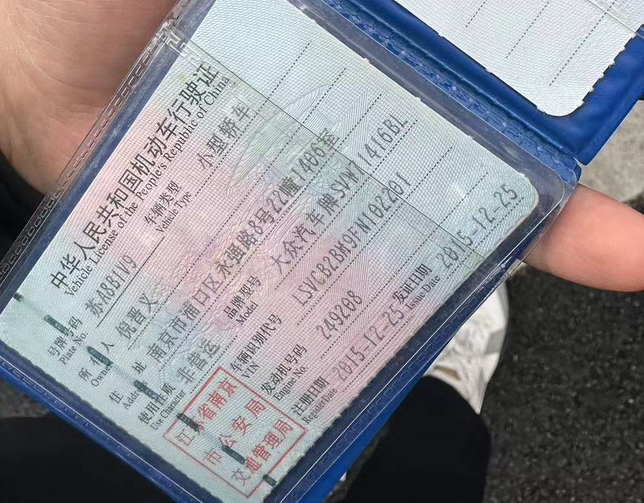 中华人民共和国机动车行驶证
Vehicle License of the People's Republic of China
号牌号码 苏A8B1V9 车辆类型 小型轿车
Plate No. Vehicle Type
所 人 倪晋义
Owner
住 址 南京市浦口区永强路8号22幢1406室
Addr
使用性质 非营运 品牌型号 大众汽车牌SVW71416BL
Use Character Model
车辆识别代号 LSVCB2BM9FN102201
VIN
发动机号码 249208
Engine No.
注册日期 2015-12-25 发证日期 2015-12-25
Register Date Issue Date
江苏省南京
市公安局
交通管理局